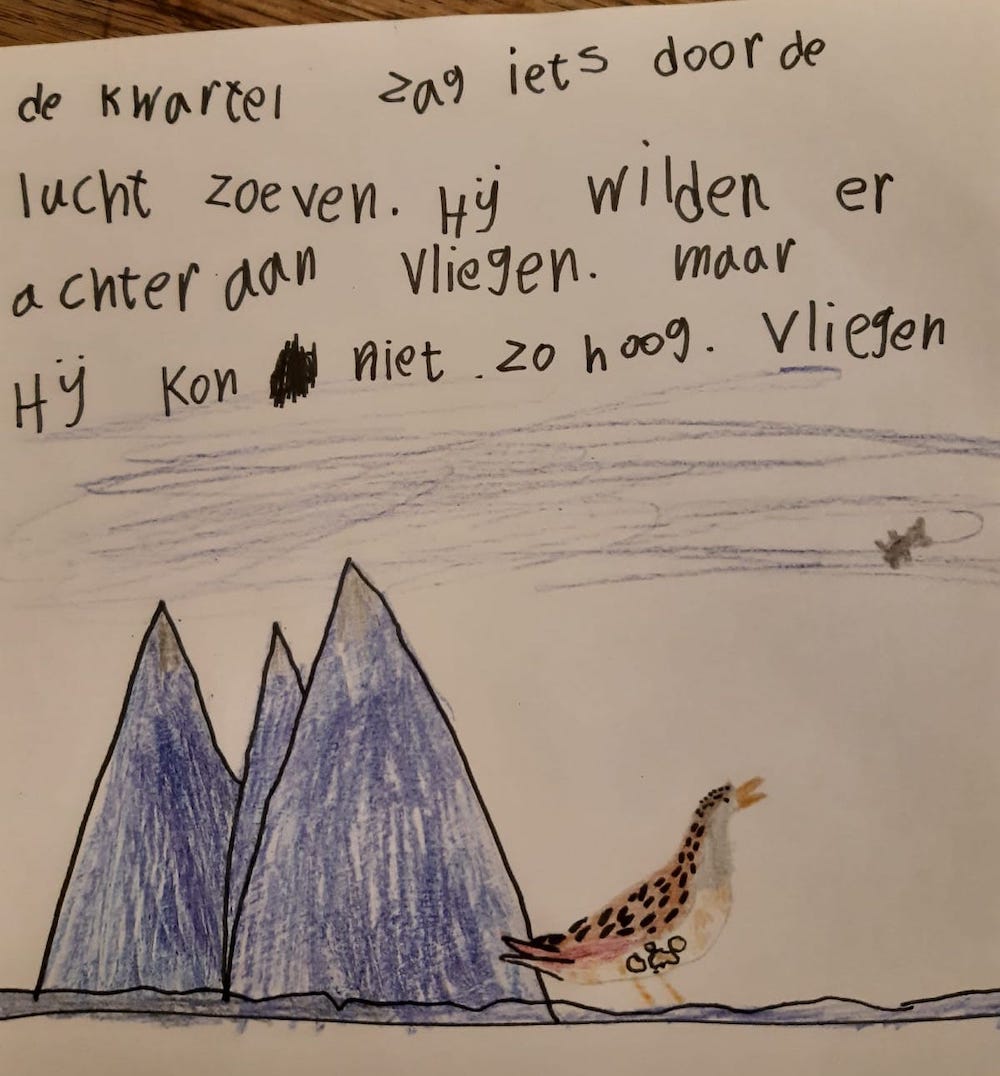 de kwartel zag iets door de
lucht zoeven. Hij wilden er
achter aan vliegen. maar
Hij kon niet . zo hoog. vliegen